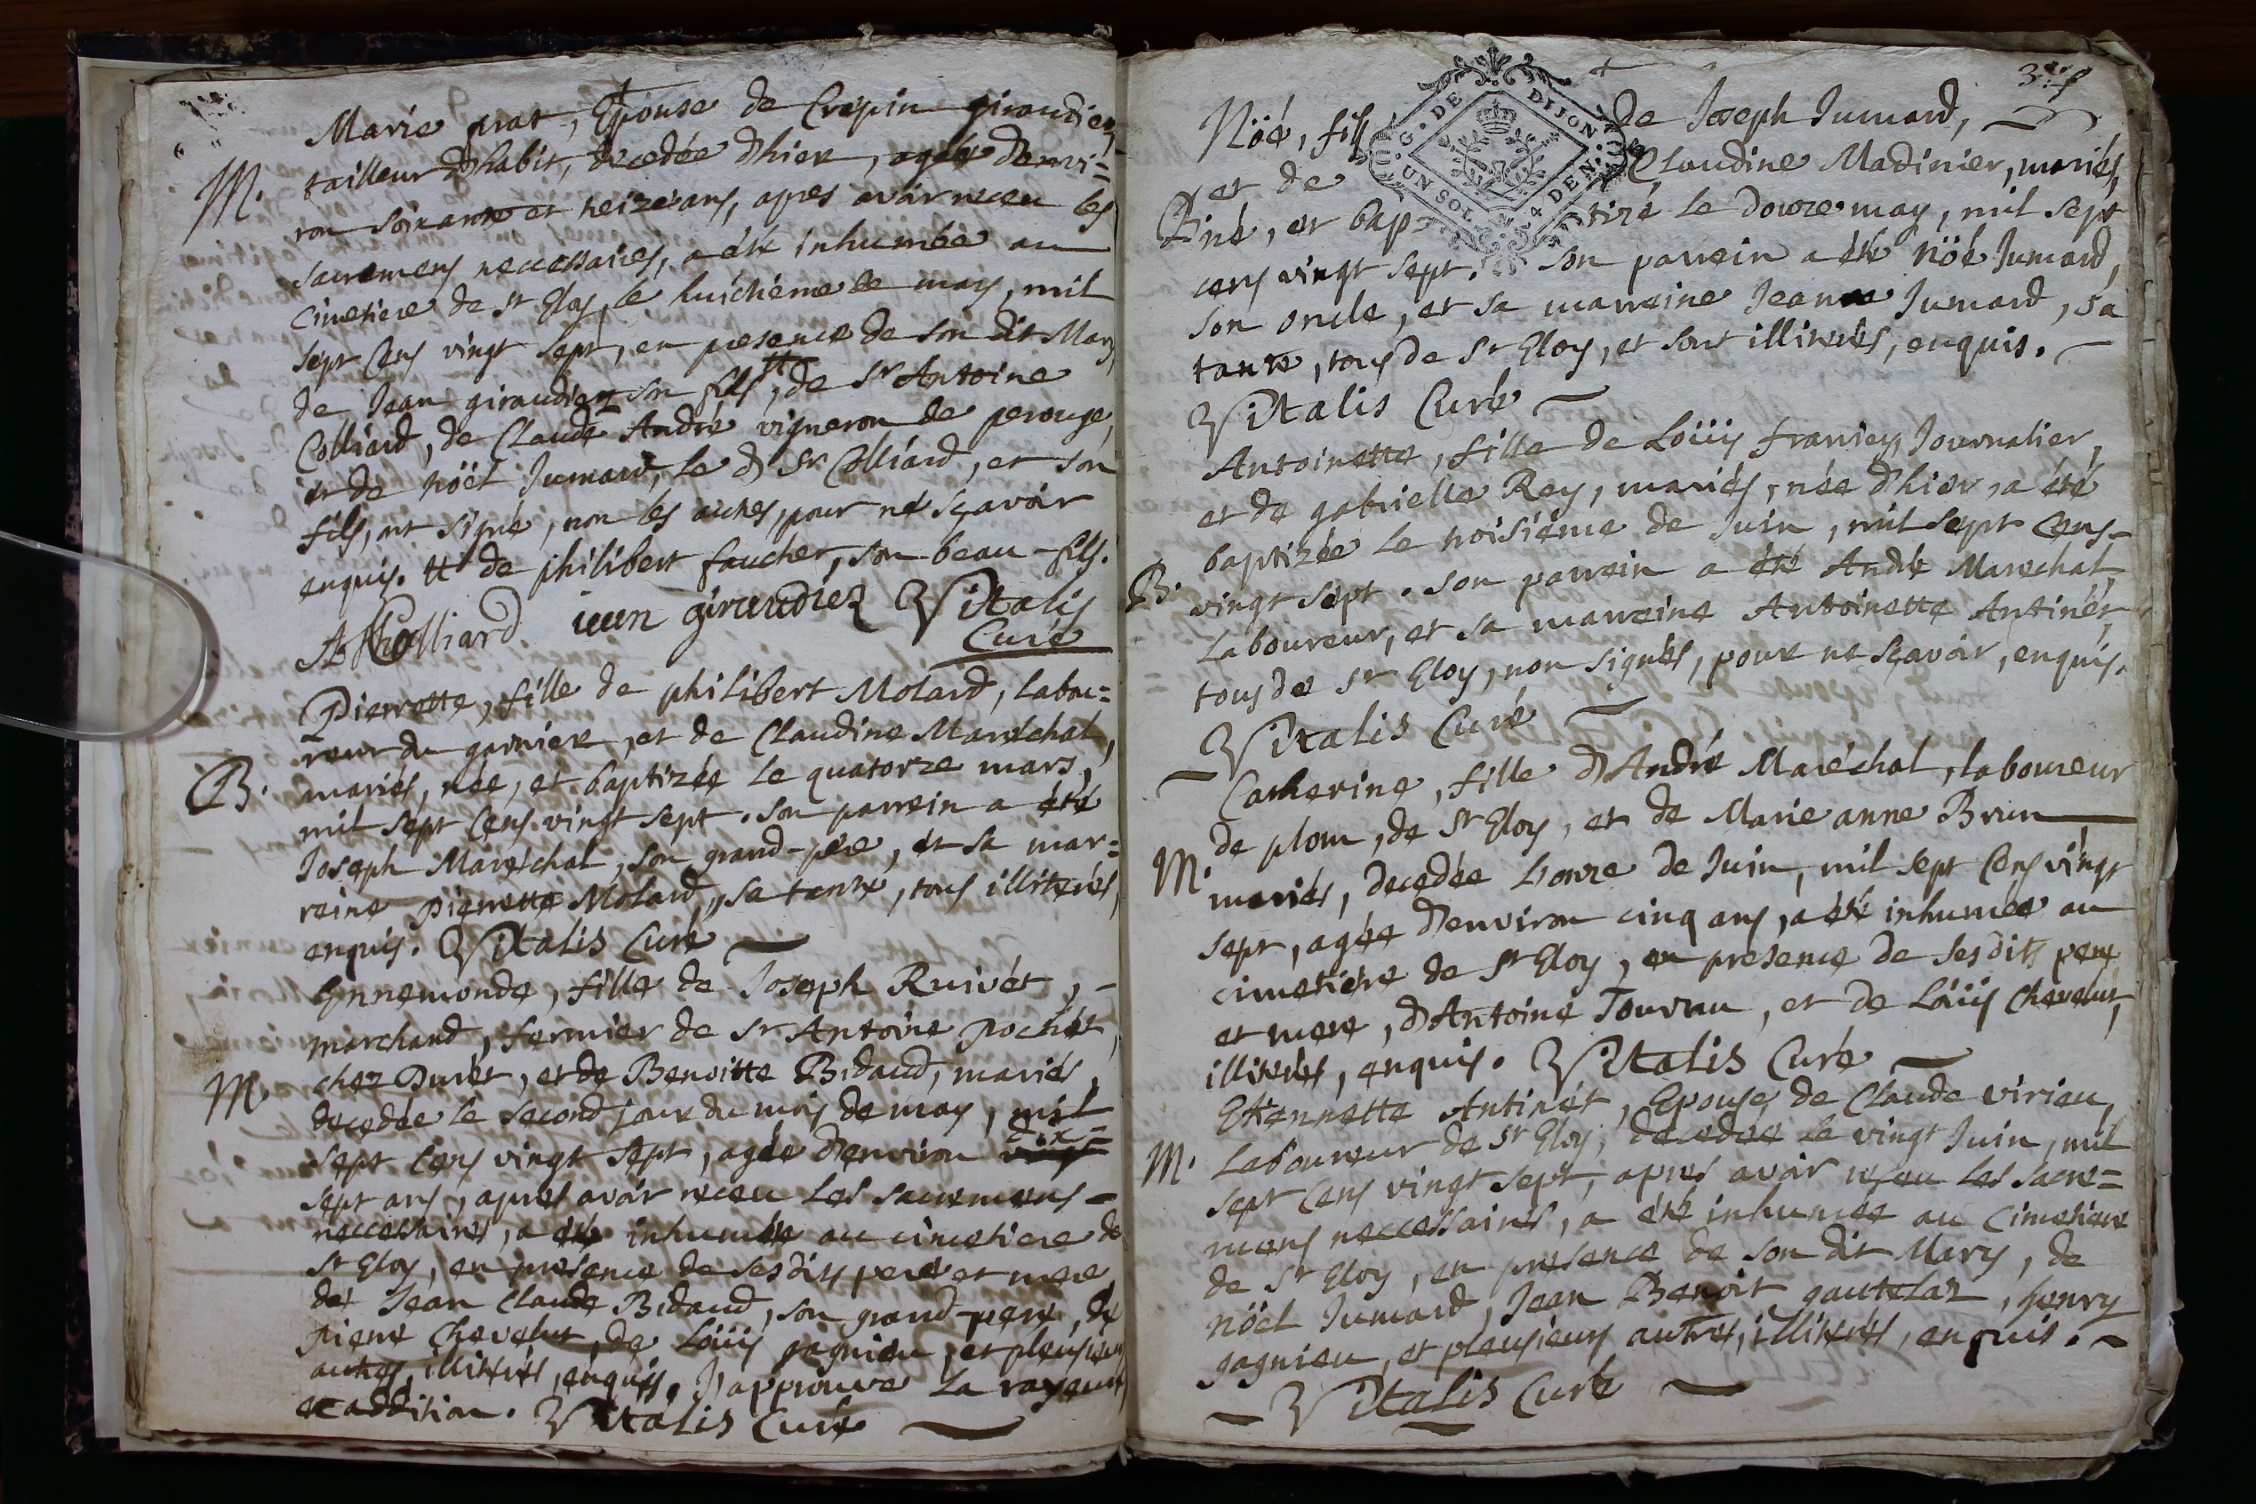 Marie prat, Epouse de Crépin giraudiez,
M. tailleur d'habit, decedée d'hier, agée d'envi=
ron soixante et treize ans, apres avoir receu les
sacremens neccessaires, a été inhumée au
cimetiere de st Eloy, le huictiéme de may, mil
sept cens vingt sept, en presence de son dit Mary,
de Jean giraudiez son fils tt, de Sr Antoine
Colliard, de Claude André vigneron de perouge,
et de nöel Jumard, le d Sr Colliard, et son
fils, ont signé, non les autres, pour ne sçavoir
enquis. tt de philibert faucher, son beau-fils.
Colliard. iean giraudiez Vitalis
Curé
Pierrette, fille de philibert Molard, labou=
reur du garnier, et de Claudine Maréchal,
B. mariés, née, et baptizée le quatorze mars,
mil sept cens vingt sept. son parrein a été
Joseph Maréchal, son grand-pére, et sa mar=
reine pierrette Molard, sa tante, tous illiterés,
enquis. Vitalis Curé
Ennemonde, fille de Joseph Ruivét,
marchand, fermier de Sr Antoine pochét,
M. chez Durét, et de Benoitte Bidaud, mariés,
decedée le second jour du mois de may, mil
dix=
sept cens vingt sept, agée d'environ vingt
sept ans, apres avoir receu les sacremens
neccessaires, a été inhumée au cimetiere de
St Eloy, en presence de ses dits pere et mere,
de Jean Claude Bidaud, son grand-pere, de
pierre Chevelut, de Loüis gagnieu, et plusieurs
autres, illiterés, enquis. J'approuve la rayeure
et addition. Vitalis Curé
3
G. DE DIJON
UN SOL 4 DEN.
Nöé, fils de Joseph Jumard,
et de Claudine Madinier, mariés,
B. né, et bap= tizé le douze may, mil sept
cens vingt sept. son parrein a été Nöé Jumard,
son oncle, et sa marreine Jeanne Jumard, sa
tante, tous de St Eloy, et sont illiterés, enquis.
Vitalis Curé
Antoinette, fille de Loüis franney, Journalier,
et de gabrielle Rey, mariés, née d'hier, a été
baptizée le troisiéme de Juin, mil sept cens
B. vingt sept. son parrein a été André Maréchal,
Laboureur, et sa marreine Antoinette Antinét,
tous de St Eloy, non signés, pour ne sçavoir, enquis.
Vitalis Curé
Catherine, fille d'André Maréchal, laboureur
de plom, de St Eloy, et de Marie anne Brun
M. mariés, decedée L'onze de Juin, mil sept cens vingt
sept, agée d'environ cinq ans, a été inhumée au
cimetiére de St Eloy, en presence de ses dits pere
et mere, d'Antoine Touvau, et de Loüis Chevelut,
illiterés, enquis. Vitalis Curé
Etiennette Antinét, Epouse de Claude virieu,
M. Laboureur de St Eloy, decedée le vingt Juin, mil
sept cens vingt sept, apres avoir reçeu les sacre=
mens neccessaires, a été inhumée au cimetiere
de St Eloy, en presence de son dit Mary, de
nöel Jumard, Jean Benoit gautelaz, henry
gagnieu, et plusieurs autres, illiterés, enquis.
Vitalis Curé